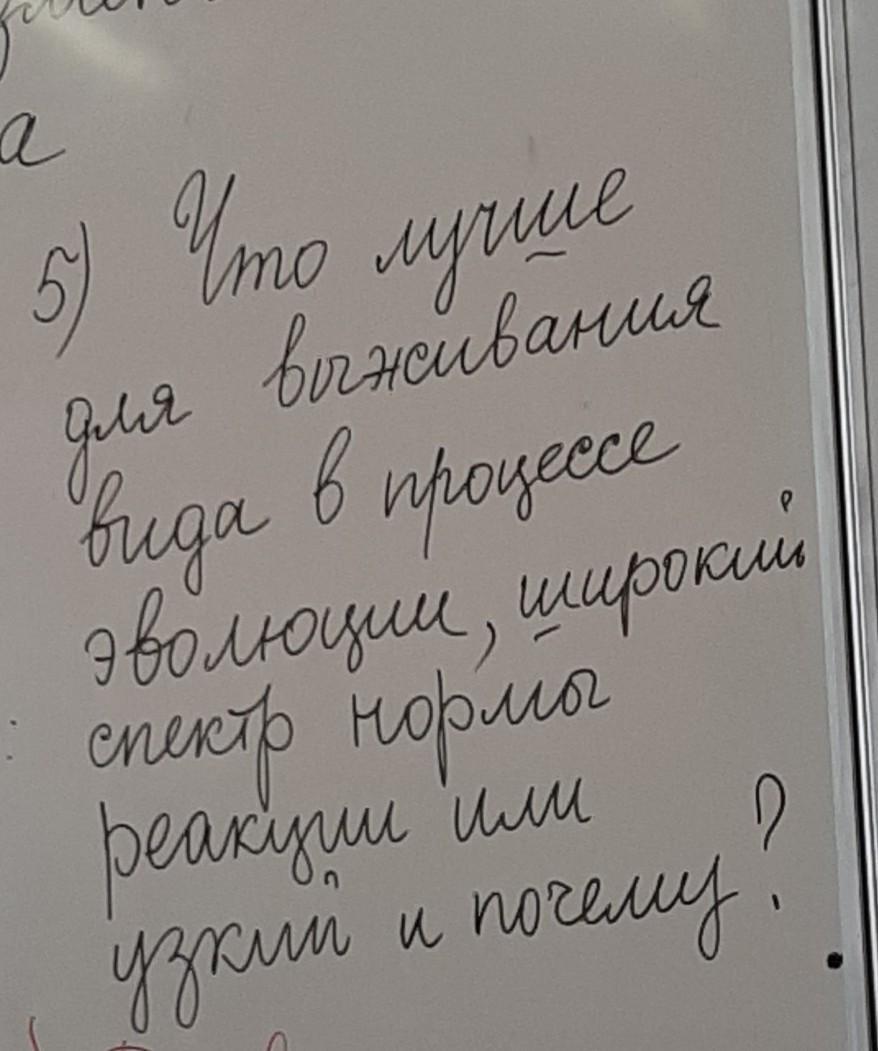 а
5) Что лучше
для выживания
вида в процессе
эволюции, широкий
спектр нормы
реакции или
узкий и почему?